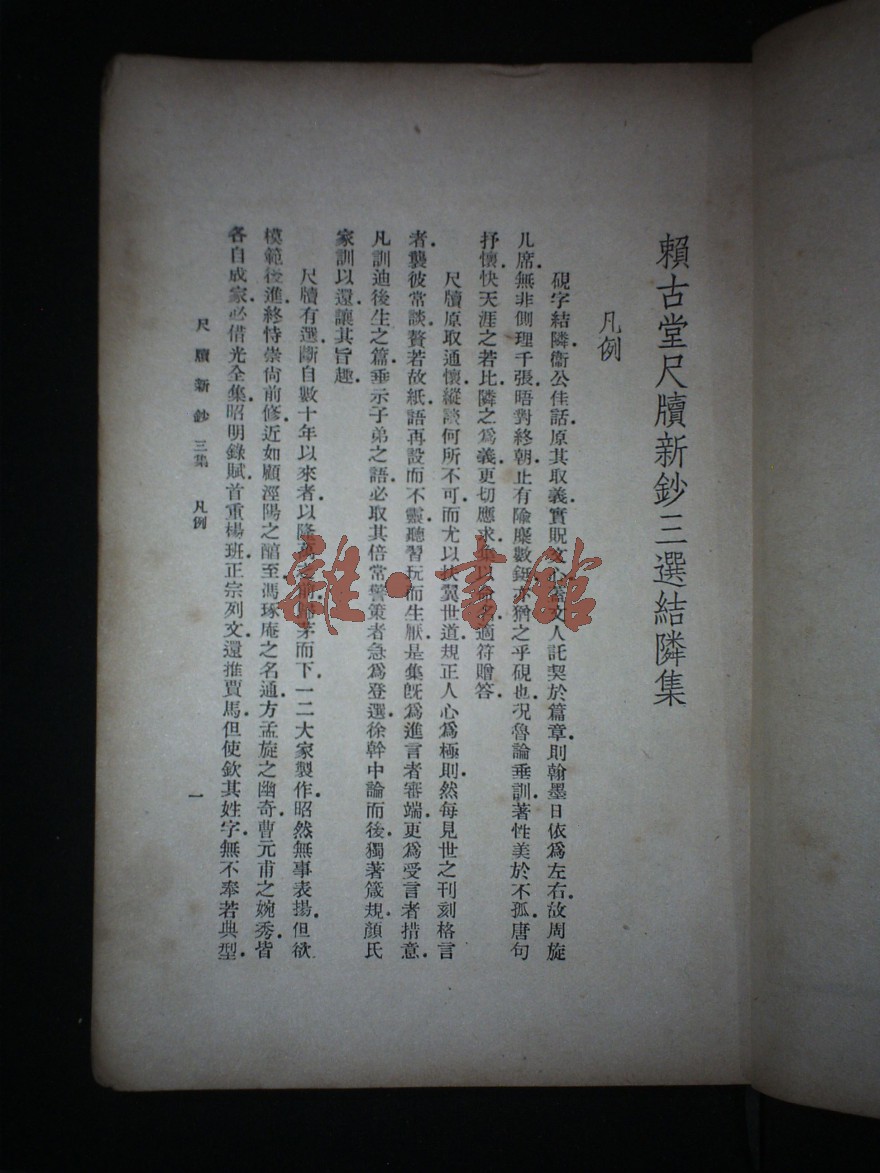 賴古堂尺牘新鈔三選結隣集
凡例
硯字結隣衞公佳話原其取義實貺文心蓋文人託契於篇章則翰墨日依爲左右故周旋
几席無非側理千張晤對終朝止有隃糜數鋌亦猶之乎硯也況魯論垂訓著性美於不孤唐句
抒懷快天涯之若比隣之爲義更切應求以名適符贈答
尺牘原取通懷縱談何所不可而尤以扶翼世道規正人心爲極則然每見世之刊刻格言
者襲彼常談贅若故紙語再設而不靈聽習玩而生厭是集旣爲進言者審端更爲受言者措意
凡訓迪後生之篇垂示子弟之語必取其倍常警策者急爲登選徐幹中論而後獨著箴規顔氏
家訓以還讓其旨趣
尺牘有選斷自數十年以來者以隆萬前歸茅而下一二大家製作昭然無事表揚但欲
模範後進終恃崇尙前修近如顧涇陽之醕至馮琢庵之名通方孟旋之幽奇曹元甫之婉秀皆
各自成家必借光全集昭明錄賦首重楊班正宗列文還推賈馬但使欽其姓字無不奉若典型
尺牘新鈔三集 凡例
一
雜·書館